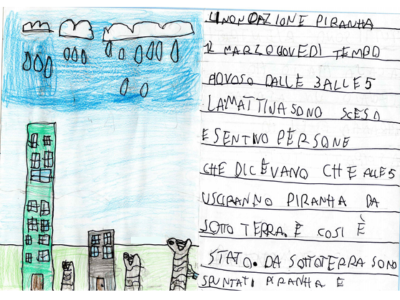 INONDAZIONE PIRANHA
2 MARZO GIOVEDI TEMPO
NUVOSO DALLE 3 ALLE 5
LA MATTINA SONO SCESO
E SENTIVO PERSONE
CHE DICEVANO CHE ALLE 5
USCIRANNO PIRANHA DA
SOTTO TERRA. E COSI È
STATO. DA SOTTOTERRA SONO
SPUNTATI PIRANHA E